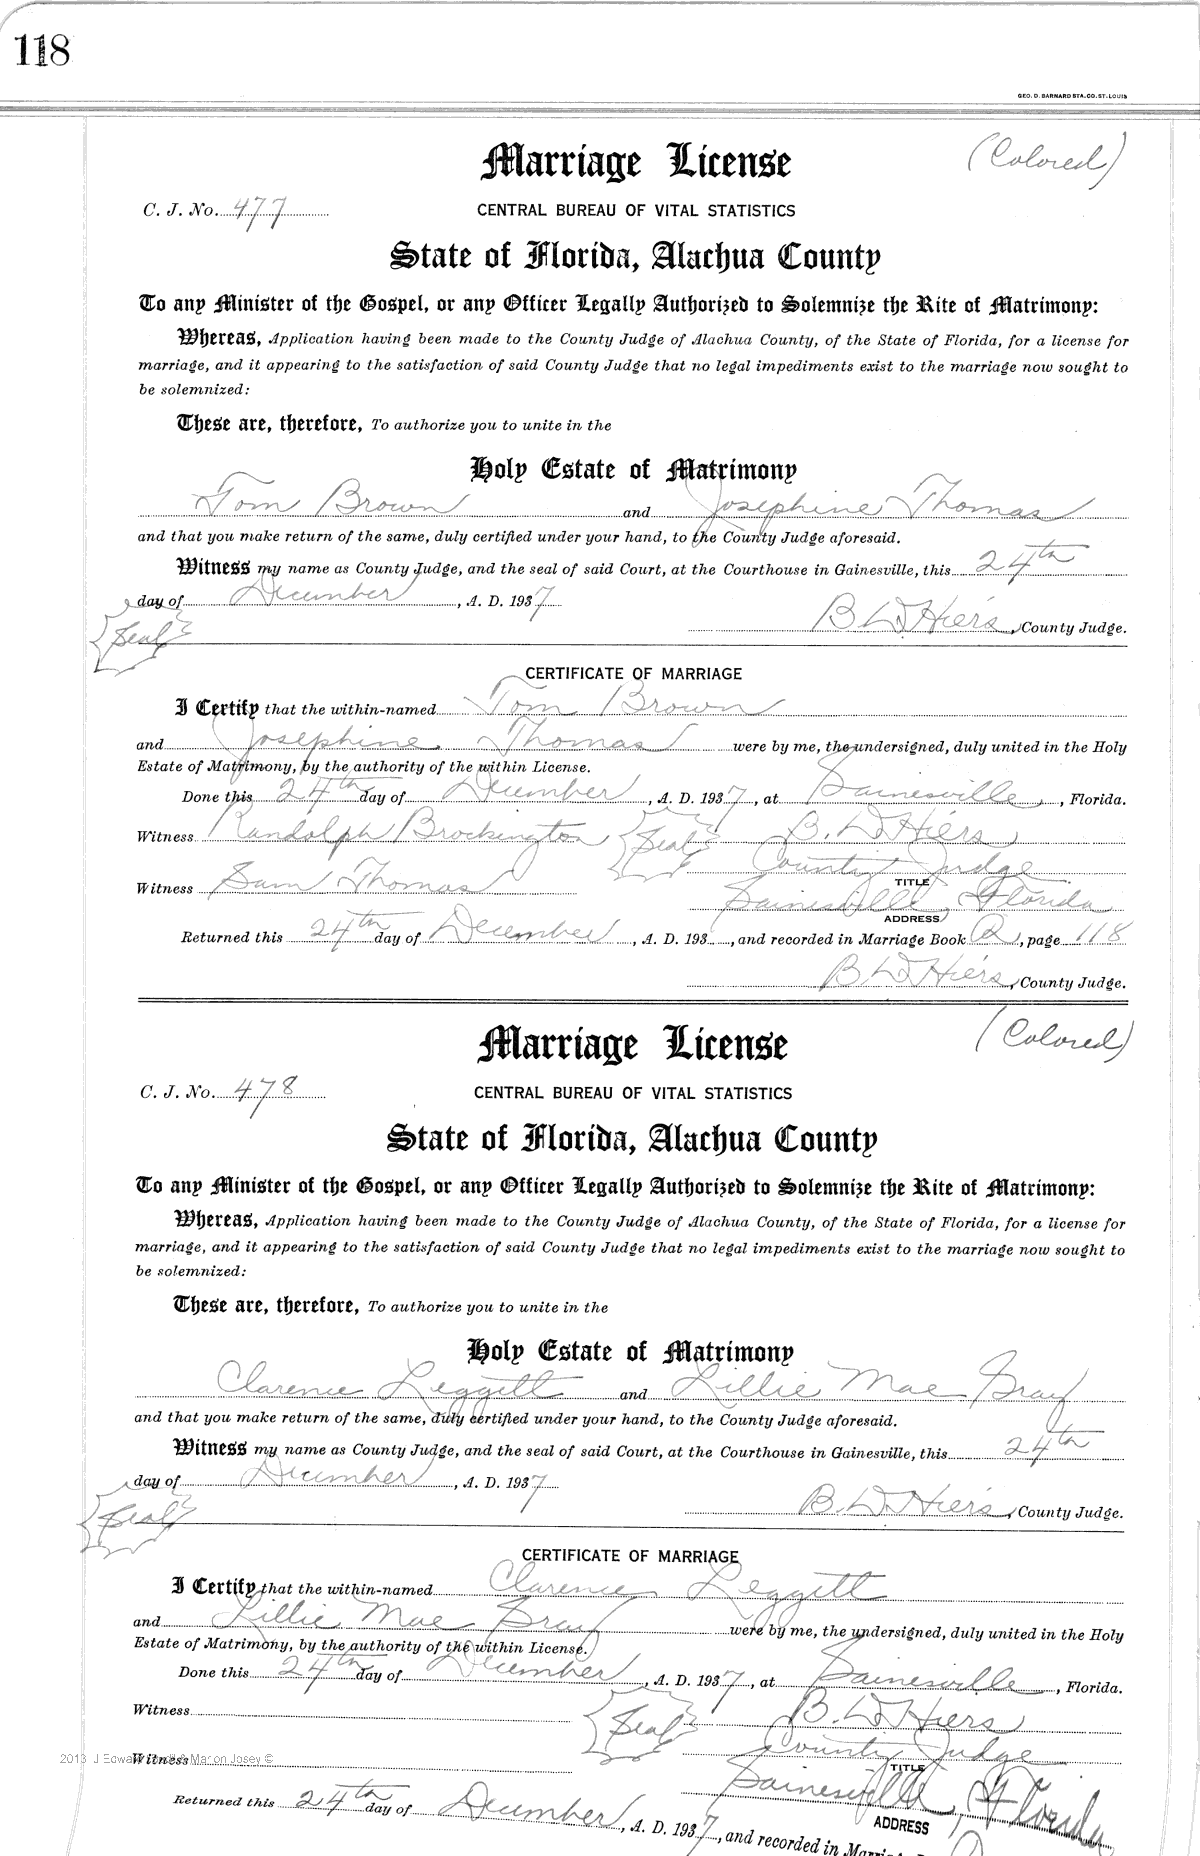 118
GEO. D. BARNARD STA. CO. ST. LOUIS
Marriage License (Colored)
C. J. No. 477 CENTRAL BUREAU OF VITAL STATISTICS
State of Florida, Alachua County
To any Minister of the Gospel, or any Officer Legally Authorized to Solemnize the Rite of Matrimony:
Whereas, Application having been made to the County Judge of Alachua County, of the State of Florida, for a license for
marriage, and it appearing to the satisfaction of said County Judge that no legal impediments exist to the marriage now sought to
be solemnized:
These are, therefore, To authorize you to unite in the
Holy Estate of Matrimony
Tom Brown and Josephine Thomas
and that you make return of the same, duly certified under your hand, to the County Judge aforesaid.
Witness my name as County Judge, and the seal of said Court, at the Courthouse in Gainesville, this 24th
day of December, A. D. 1937
(Seal) B D Hiers, County Judge.
CERTIFICATE OF MARRIAGE
I Certify that the within-named Tom Brown
and Josephine Thomas were by me, the undersigned, duly united in the Holy
Estate of Matrimony, by the authority of the within License.
Done this 24th day of December, A. D. 1937, at Gainesville, Florida.
Witness Randolph Brockington (Seal) B. D Hiers
County Judge
Witness Sam Thomas TITLE
Gainesville, Florida
ADDRESS
Returned this 24th day of December, A. D. 193, and recorded in Marriage Book Q, page 118
B D Hiers, County Judge.
Marriage License (Colored)
C. J. No. 478 CENTRAL BUREAU OF VITAL STATISTICS
State of Florida, Alachua County
To any Minister of the Gospel, or any Officer Legally Authorized to Solemnize the Rite of Matrimony:
Whereas, Application having been made to the County Judge of Alachua County, of the State of Florida, for a license for
marriage, and it appearing to the satisfaction of said County Judge that no legal impediments exist to the marriage now sought to
be solemnized:
These are, therefore, To authorize you to unite in the
Holy Estate of Matrimony
Clarence Leggett and Lillie Mae Gray
and that you make return of the same, duly certified under your hand, to the County Judge aforesaid.
Witness my name as County Judge, and the seal of said Court, at the Courthouse in Gainesville, this 24th
day of December, A. D. 1937
(Seal) B. D Hiers, County Judge.
CERTIFICATE OF MARRIAGE
I Certify that the within-named Clarence Leggett
and Lillie Mae Gray were by me, the undersigned, duly united in the Holy
Estate of Matrimony, by the authority of the within License.
Done this 24th day of December, A. D. 1937, at Gainesville, Florida.
Witness (Seal) B. D Hiers
County Judge
2013 J Edward & Marion Josey ©
Witness TITLE
Gainesville, Florida
ADDRESS
Returned this 24th day of December, A. D. 1937, and recorded in